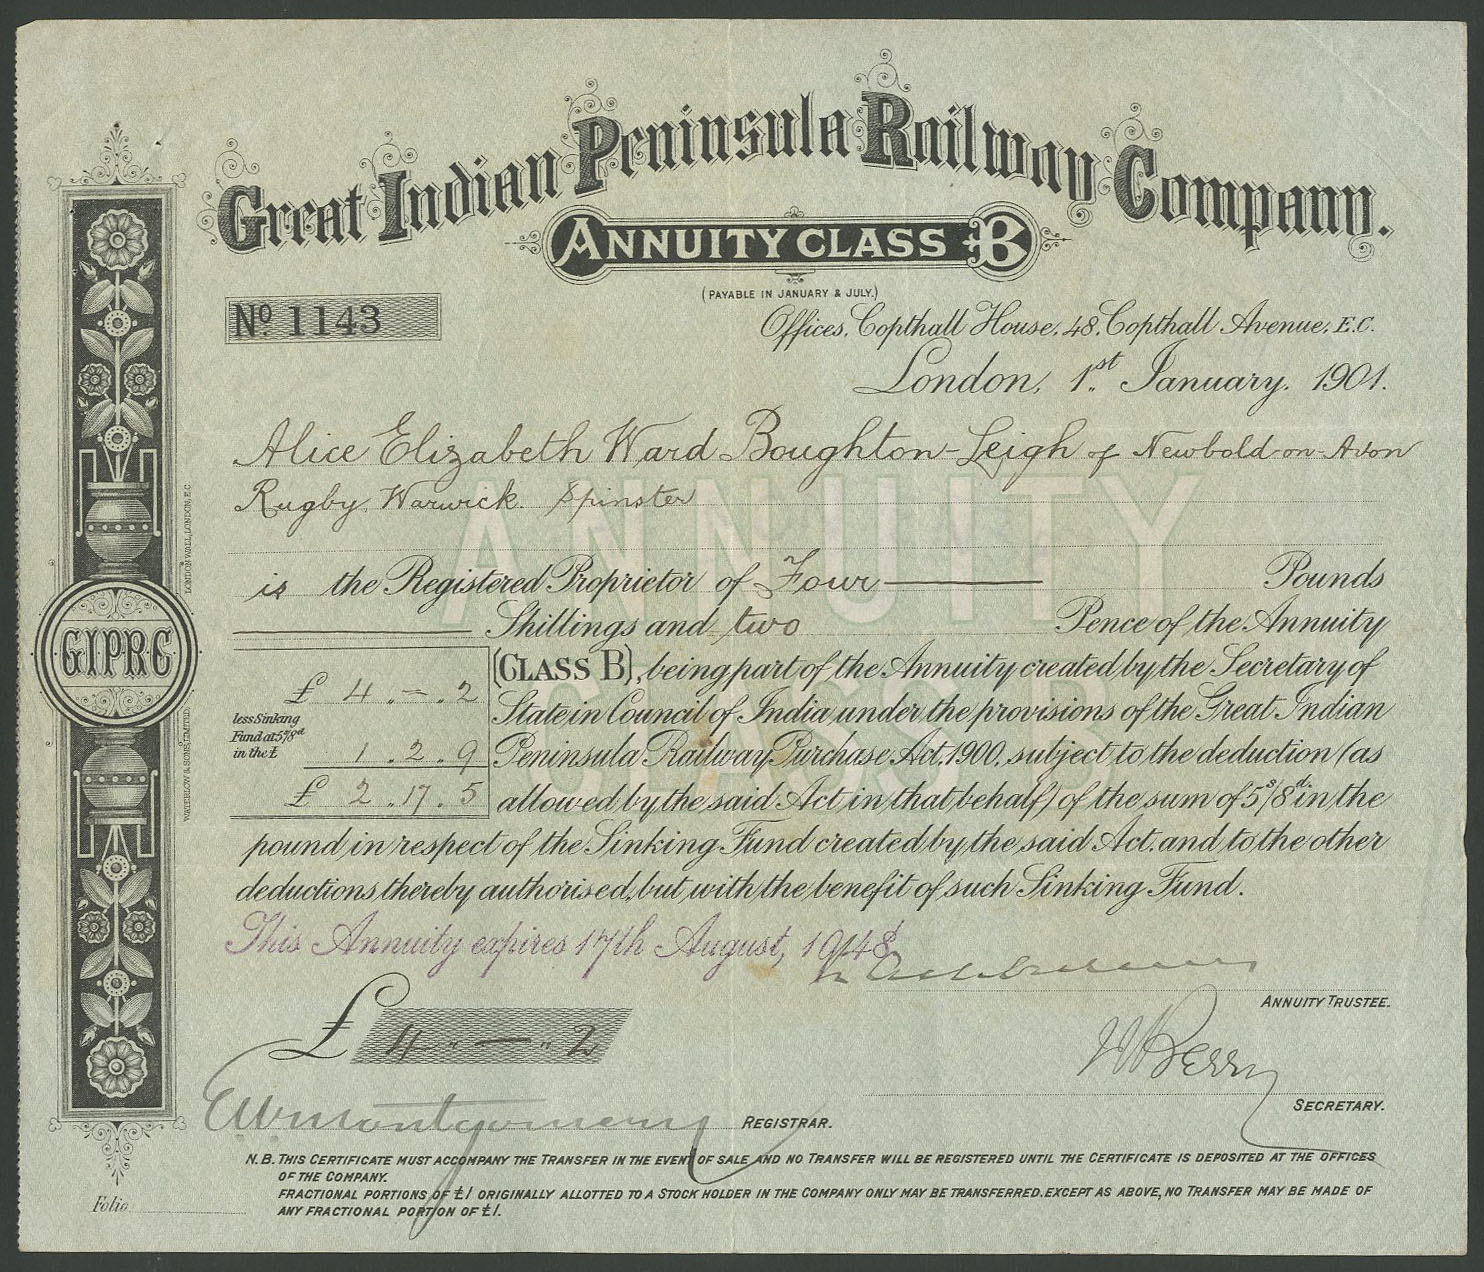 Great Indian Peninsula Railway Company.
ANNUITY CLASS B
(PAYABLE IN JANUARY & JULY.)
No 1143
Offices, Copthall House, 48, Copthall Avenue, E.C.
London, 1st January, 1901.
Alice Elizabeth Ward Boughton-Leigh of Newbold-on-Avon
Rugby, Warwick. Spinster
is the Registered Proprietor of Four Pounds
Shillings and two Pence of the Annuity
(CLASS B), being part of the Annuity created by the Secretary of
£ 4 . – . 2
State in Council of India under the provisions of the Great Indian
less Sinking
Fund at 5s/8d
in the £
1 . 2 . 9
Peninsula Railway Purchase Act, 1900, subject to the deduction (as
£ 2 . 17 . 5
allowed by the said Act in that behalf) of the sum of 5s/8d in the
pound in respect of the Sinking Fund created by the said Act, and to the other
deductions thereby authorised, but with the benefit of such Sinking Fund.
This Annuity expires 17th August, 1948
ANNUITY TRUSTEE.
£ 4 " — " 2
Berry
SECRETARY.
Montgomery
REGISTRAR.
N.B. THIS CERTIFICATE MUST ACCOMPANY THE TRANSFER IN THE EVENT OF SALE AND NO TRANSFER WILL BE REGISTERED UNTIL THE CERTIFICATE IS DEPOSITED AT THE OFFICES
OF THE COMPANY.
FRACTIONAL PORTIONS OF £1 ORIGINALLY ALLOTTED TO A STOCK HOLDER IN THE COMPANY ONLY MAY BE TRANSFERRED. EXCEPT AS ABOVE, NO TRANSFER MAY BE MADE OF
ANY FRACTIONAL PORTION OF £1.
Folio
GIPRC
WATERLOW & SONS LIMITED, LONDON WALL, LONDON, E.C.
ANNUITY
CLASS B